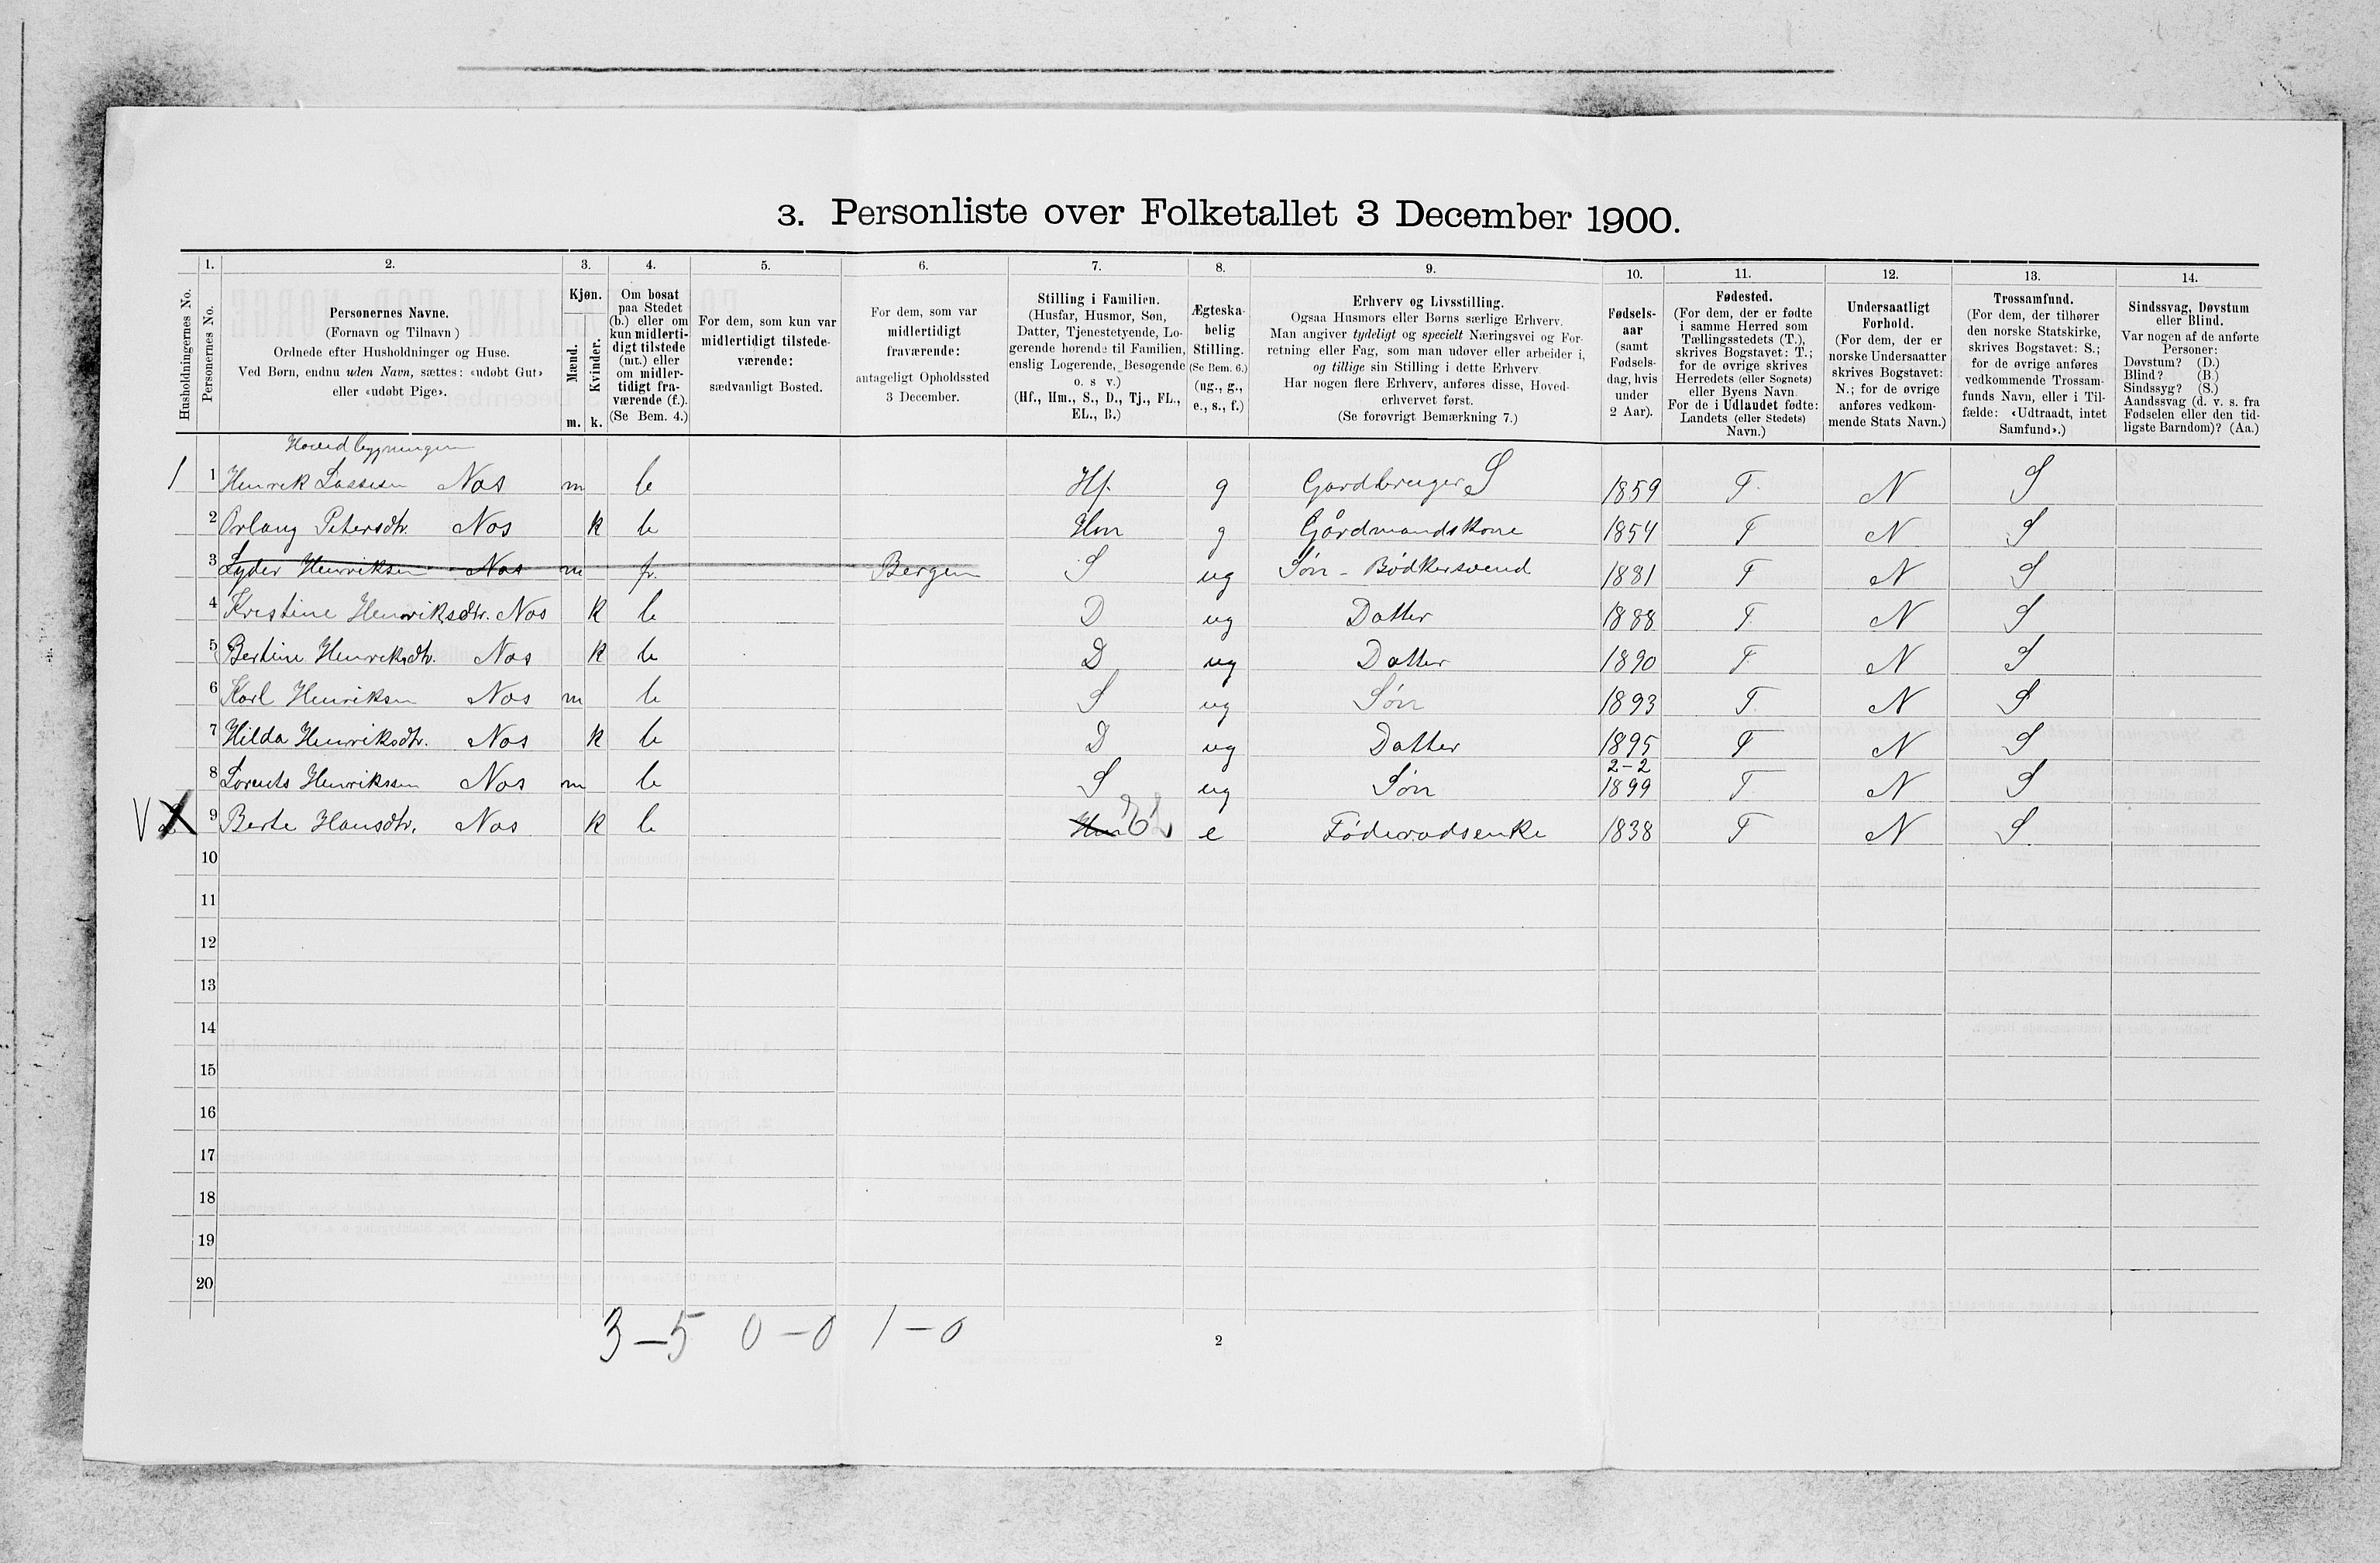 3. Personliste over Folketallet 3 December 1900.
1. 2. 3. 4. 5. 6. 7. 8. 9. 10. 11. 12. 13. 14.
Husholdningernes No.
Personernes No.
Personernes Navne.
(Fornavn og Tilnavn)
Ordnede efter Husholdninger og Huse.
Ved Børn, endnu uden Navn, sættes: «udøbt Gut»
eller «udøbt Pige».
Kjøn.
Mænd.
Kvinder.
m. k.
Om bosat
paa Stedet
(b.) eller om
kun midlerti-
digt tilstede
(mt.) eller
om midler-
tidigt fra-
værende (f.).
(Se Bem. 4.)
For dem, som kun var
midlertidigt tilstede-
værende:
sædvanligt Bosted.
For dem, som var
midlertidigt
fraværende:
antageligt Opholdssted
3 December.
Stilling i Familien.
(Husfar, Husmor, Søn,
Datter, Tjenestetyende, Lo-
gerende hørende til Familien,
enslig Logerende, Besøgende
o. s v.)
(Hf., Hm., S., D., Tj., FL.,
EL., B.)
Ægteska-
belig
Stilling.
(Se Bem. 6.)
(ug., g.,
e., s., f.)
Erhverv og Livsstilling.
Ogsaa Husmors eller Børns særlige Erhverv.
Man angiver tydeligt og specielt Næringsvei og For-
retning eller Fag, som man udøver eller arbeider i,
og tillige sin Stilling i dette Erhverv.
Har nogen flere Erhverv, anføres disse, Hoved-
erhvervet først.
(Se forøvrigt Bemærkning 7.)
Fødsels-
aar
(samt
Fødsels-
dag, hvis
under
2 Aar).
Fødested.
(For dem, der er fødte
i samme Herred som
Tællingsstedets (T.),
skrives Bogstavet: T.;
for de øvrige skrives
Herredets (eller Sognets)
eller Byens Navn.
For de i Udlandet fødte:
Landets (eller Stedets)
Navn.)
Undersaatligt
Forhold.
(For dem, der er
norske Undersaatter
skrives Bogstavet:
N.; for de øvrige
anføres vedkom-
mende Stats Navn.)
Trossamfund.
(For dem, der tilhører
den norske Statskirke,
skrives Bogstavet: S.;
for de øvrige anføres
vedkommende Trossam-
funds Navn, eller i Til-
fælde: «Udtraadt, intet
Samfund».)
Sindssvag, Døvstum
eller Blind.
Var nogen af de anførte
Personer:
Døvstum? (D.)
Blind? (B.)
Sindssyg? (S.)
Aandssvag (d. v. s. fra
Fødselen eller den tid-
ligste Barndom)? (Aa.)
Hovedbygningen
1 1 Henrik Lassesen Nos m b Hf. g Gardbruger S 1859 T. N S
2 Orlaug Petersdtr. Nos k b Hm g Gårdmandskone 1854 T N S
3 Lyder Henriksen Nos m fr. Bergen S ug Søn - Bødkersvend 1881 T N S
4 Kristine Henriksdtr. Nos k b D ug Datter 1888 T. N S
5 Bertine Henriksdtr. Nos k b D ug Datter 1890 T N S
6 Karl Henriksen Nos m b S ug Søn 1893 T. N S
7 Hilda Henriksdtr. Nos k b D ug Datter 1895 T N S
8 Lorents Henrikssen Nos m b S ug Søn 2-2 1899 T N S
V 9 Berte Hansdtr. Nos k b Hm EL e Føderaadsenke 1838 T N S
10
11
12
13
14
15
16
17
18
19
20
3-5 0-0 1-0
2